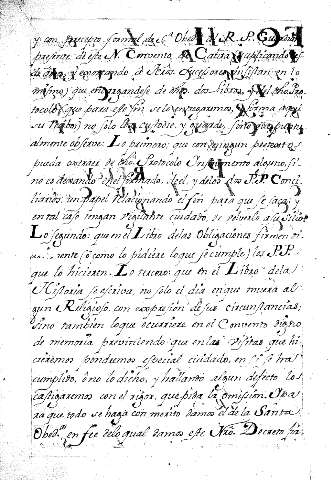 y con precepto formal de S.ta Obed.a al R. P. Guardian
presente de este N. Convento de Catira y suplicando
y exortando à Sus Successores en
mismo) que entregandose de dos libros, y Proto-
colo que para este fin se lo entregamos,
no solo los custodie y guarde, sino
almente observe: Lo primero: que con ningun pretexto
pueda sacarse de dho Protocolo Instrumento alguno, si
no es dexando firmado de el, y de los dos P.P. Conci
liarios, un papel relacionando el fin para que se saca; y
en tal caso tengan vegilante cuidado, de bolverlo a su
Lo segundo: que en el Libro de las Obligaciones firmen
(sò como lo pidiere lo que se cumple) los P.P.
que lo hicieren. Lo tercero: que en el Libro de la
Historia se escriva, no solo el dia en que muera al
gun Religioso, con expression de sus circunstancias;
sino tambien lo que ocurriere en el Convento digno
de memoria previniendo que en las Visitas que hi
cieremos pondremos especial cuidado, en si se hà
cumplido, ò no lo dicho, y hallando algun defecto los
castigaremos con el rigor, que pida la omission. Y pa
ra que todo se haga con merito damos el de la Santa
Obed.a en fee de lo qual damos este Nro. Decreto fir